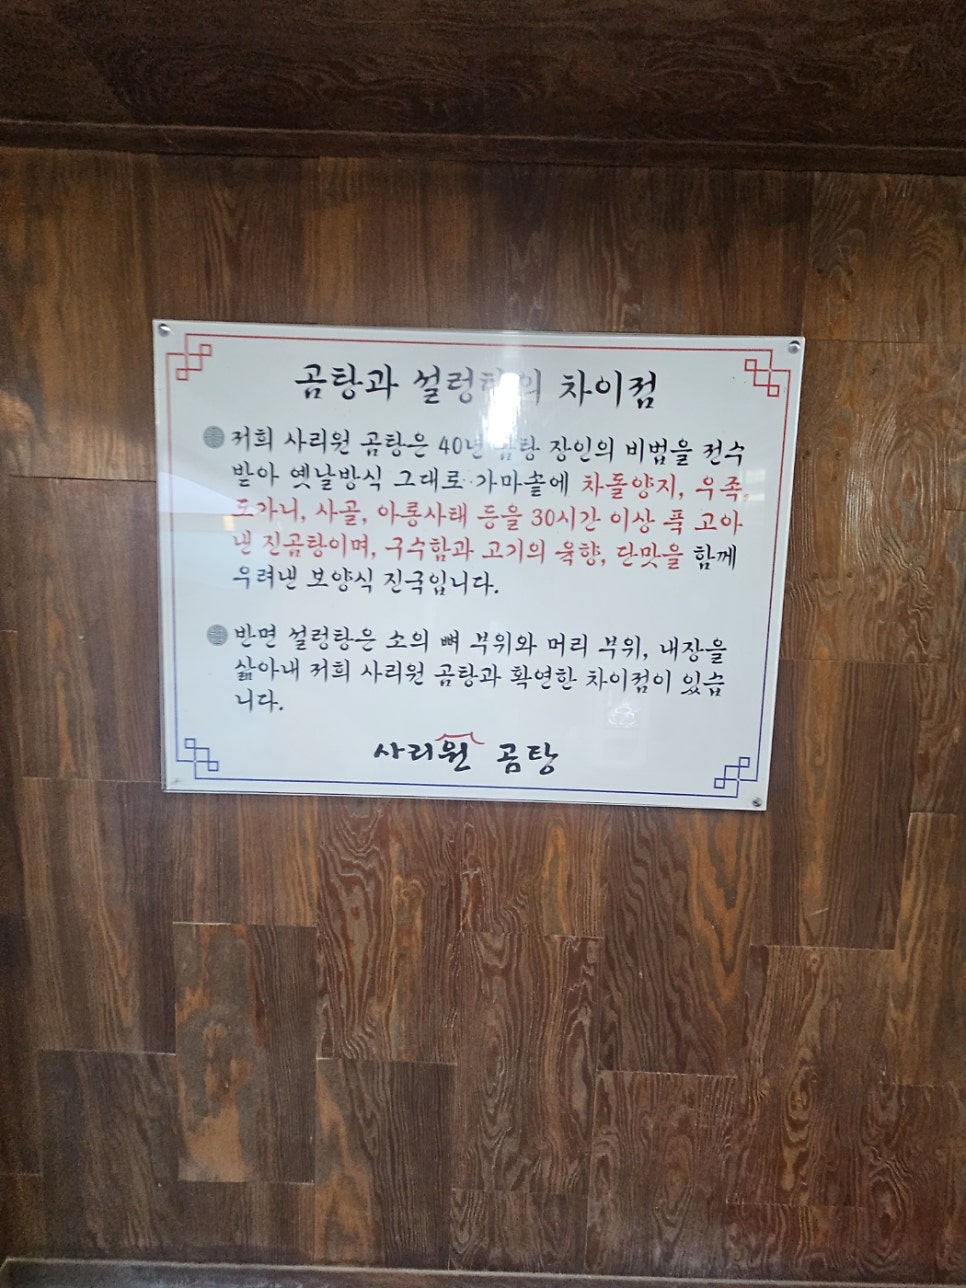 곰탕과 설렁탕의 차이점
저희 사리원 곰탕은 40년 곰탕 장인의 비법을 전수
받아 옛날방식 그대로 가마솥에 차돌양지, 우족,
도가니, 사골, 아롱사태 등을 30시간 이상 푹 고아
낸 진곰탕이며, 구수함과 고기의 육향, 단맛을 함께
우려낸 보양식 진국입니다.
반면 설렁탕은 소의 뼈 부위와 머리 부위, 내장을
삶아내 저희 사리원 곰탕과 확연한 차이점이 있습
니다.
사리원 곰탕